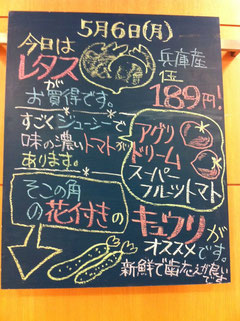 5月6日(月)
今日は
レタス
が
お買得です。
兵庫産
1玉
189円!
すごくジューシーで
味の濃いトマトが
あります。
アグリ
ドリーム
スーパー
フルーツトマト
そこの角
の花付きの
キュウリが
オススメです。
新鮮で歯ごたえが良い